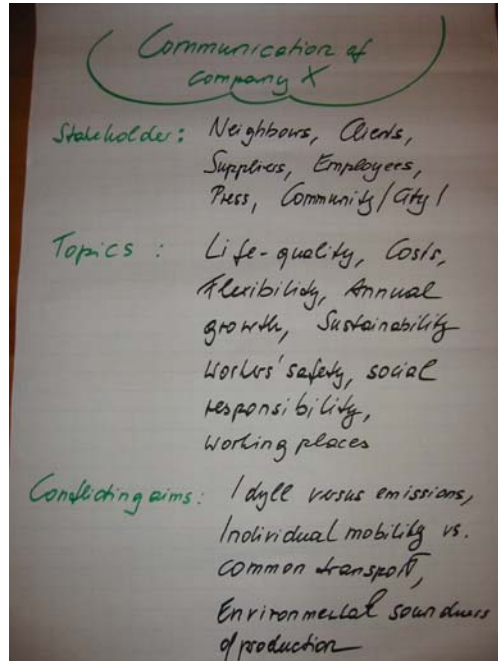 Communication of
company X
Stakeholder: Neighbours, Clients,
Suppliers, Employees,
Press, Community/City/
Topics : Life-quality, Costs,
Flexibility, Annual
growth, Sustainability
Workers' safety, social
responsibility,
working places
Conflicting aims: Idyll versus emissions,
Individual mobility vs.
common transport,
Environmental soundness
of production